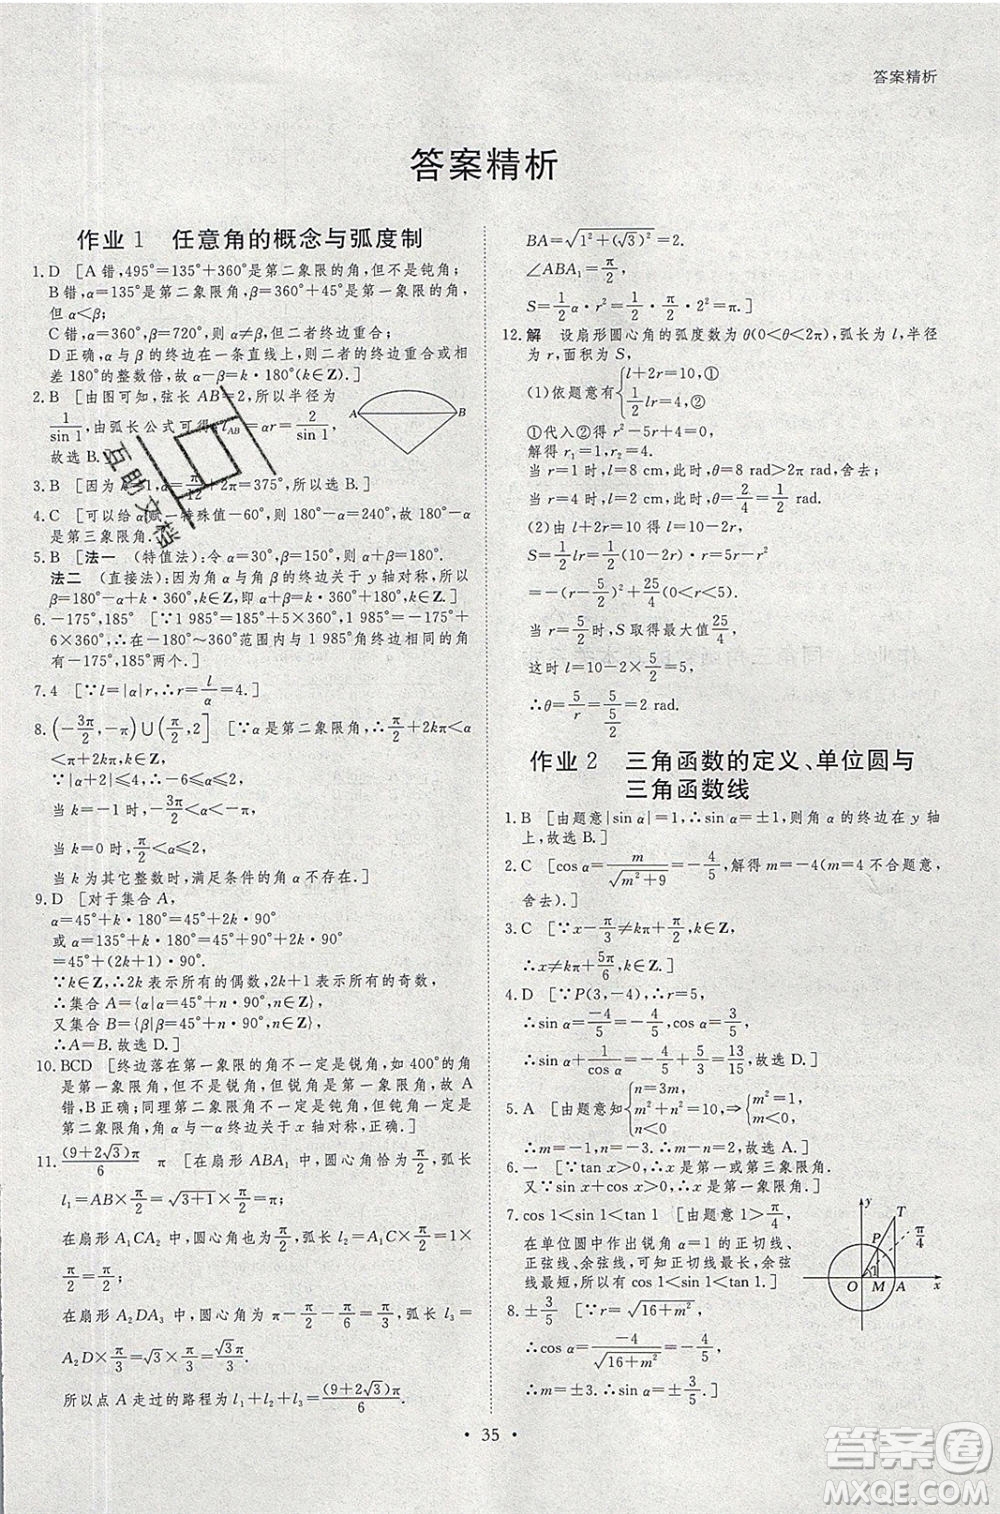 答案精析
答案精析
作业1 任意角的概念与弧度制
1.D [A错,495°=135°+360°是第二象限的角,但不是钝角;
B错,α=135°是第二象限角,β=360°+45°是第一象限角,
但α<β;
C错,α=360°,β=720°,则α≠β,但二者终边重合;
D正确,α与β的终边在一条直线上,则二者的终边重合或相
差180°的整数倍,故α-β=k·180°(k∈Z).]
2.B [由图可知,弦长AB=2,所以半径为
1/sin 1,由弧长公式可得l_AB=αr=2/sin 1,
故选B.]
A B
3.B
4.C [可以给α赋一特殊值-60°,则180°-α=240°,故180°-α
是第三象限角.]
5.B [法一 (特值法):令α=30°,β=150°,则α+β=180°.
法二 (直接法):因为角α与角β的终边关于y轴对称,所以
β=180°-α+k·360°(k∈Z),即α+β=k·360°+180°,k∈Z.]
6.-175°,185° [∵1 985°=185°+5×360°,1 985°=-175°+
6×360°,∴在-180°~360°范围内与1 985°角终边相同的角
有-175°,185°两个.]
7.4 [∵l=|α|r,∴r=l/α=4.]
8.(-3π/2,-π)∪(π/2,2] [∵α是第二象限角,∴π/2+2kπ<α
<π+2kπ,k∈Z,
∵|α+2|≤4,∴-6≤α≤2,
当k=-1时,-3π/2<α<-π,
当k=0时,π/2<α≤2,
当k为其它整数时,满足条件的角α不存在.]
9.D [对于集合A,
α=45°+k·180°=45°+2k·90°
或α=135°+k·180°=45°+90°+2k·90°
=45°+(2k+1)·90°.
∵k∈Z,∴2k表示所有的偶数,2k+1表示所有的奇数,
∴集合A={α|α=45°+n·90°,n∈Z},
又集合B={β|β=45°+n·90°,n∈Z},
∴A=B.故选D.]
10.BCD [终边落在第一象限的角不一定是锐角,如400°的角
是第一象限角,但不是锐角,但锐角是第一象限的角,故A
错,B正确;同理第二象限角不一定是钝角,但钝角一定是第
二象限角,角α与-α终边关于x轴对称,正确.]
11.(9+2√3)π/6 π [在扇形ABA₁中,圆心角恰为π/2,弧长
l₁=AB×π/2=√(3+1)×π/2=π,
在扇形A₁CA₂中,圆心角也为π/2,弧长l₂=A₁C×π/2=1×
π/2=π/2,
在扇形A₂DA₃中,圆心角为π-π/2-π/6=π/3,弧长l₃=
A₂D×π/3=√3×π/3=√3/3π,
所以点A走过的路程为l₁+l₂+l₃=(9+2√3)π/6.
BA=√(1²+(√3)²)=2.
∠ABA₁=π/2,
S=1/2α·r²=1/2·π/2·2²=π.]
12.解 设扇形圆心角的弧度数为θ(0<θ<2π),弧长为l,半径
为r,面积为S,
(1)依题意有{l+2r=10,① 1/2lr=4,②
①代入②得r²-5r+4=0,
解得r₁=1,r₂=4.
当r=1时,l=8 cm,此时,θ=8 rad>2π rad,舍去;
当r=4时,l=2 cm,此时,θ=2/4=1/2 rad.
(2)由l+2r=10得l=10-2r,
S=1/2lr=1/2(10-2r)·r=5r-r²
=-(r-5/2)²+25/4(0<r<5).
当r=5/2时,S取得最大值25/4,
这时l=10-2×5/2=5,
∴θ=l/r=5/(5/2)=2 rad.
作业2 三角函数的定义、单位圆与
三角函数线
1.B [由题意|sin α|=1,∴sin α=±1,则角α的终边在y轴
上,故选B.]
2.C [cos α=m/√(m²+9)=-4/5,解得m=-4(m=4不合题意,
舍去).]
3.C [∵x-π/3≠kπ+π/2,k∈Z,
∴x≠kπ+5π/6,k∈Z.]
4.D [∵P(3,-4),∴r=5,
∴sin α=-4/5=-4/5,cos α=3/5,
5.A [由题意知{n=3m, m²+n²=10, n<0 ⇒{m²=1, n<0,
∴m=-1,n=-3,∴m-n=2.故选A.]
6.一 [∵tan x>0,∴x是第一或第三象限角.
又∵sin x+cos x>0,∴x是第一象限角.]
7.cos 1<sin 1<tan 1 [由题意1>π/4,
在单位圆中作出锐角α=1的正切线、
正弦线、余弦线,可知正切线最长,余
弦线最短,所以有cos 1<sin 1<tan 1.]
y T P π/4 1 O M A x
8.±3/5 [∵r=√(16+m²),
∴cos α=-4/√(16+m²)=-4/5,
∴m=±3,∴sin α=±3/5.]
• 35 •
互助文档
答案圈
MXQE.COM